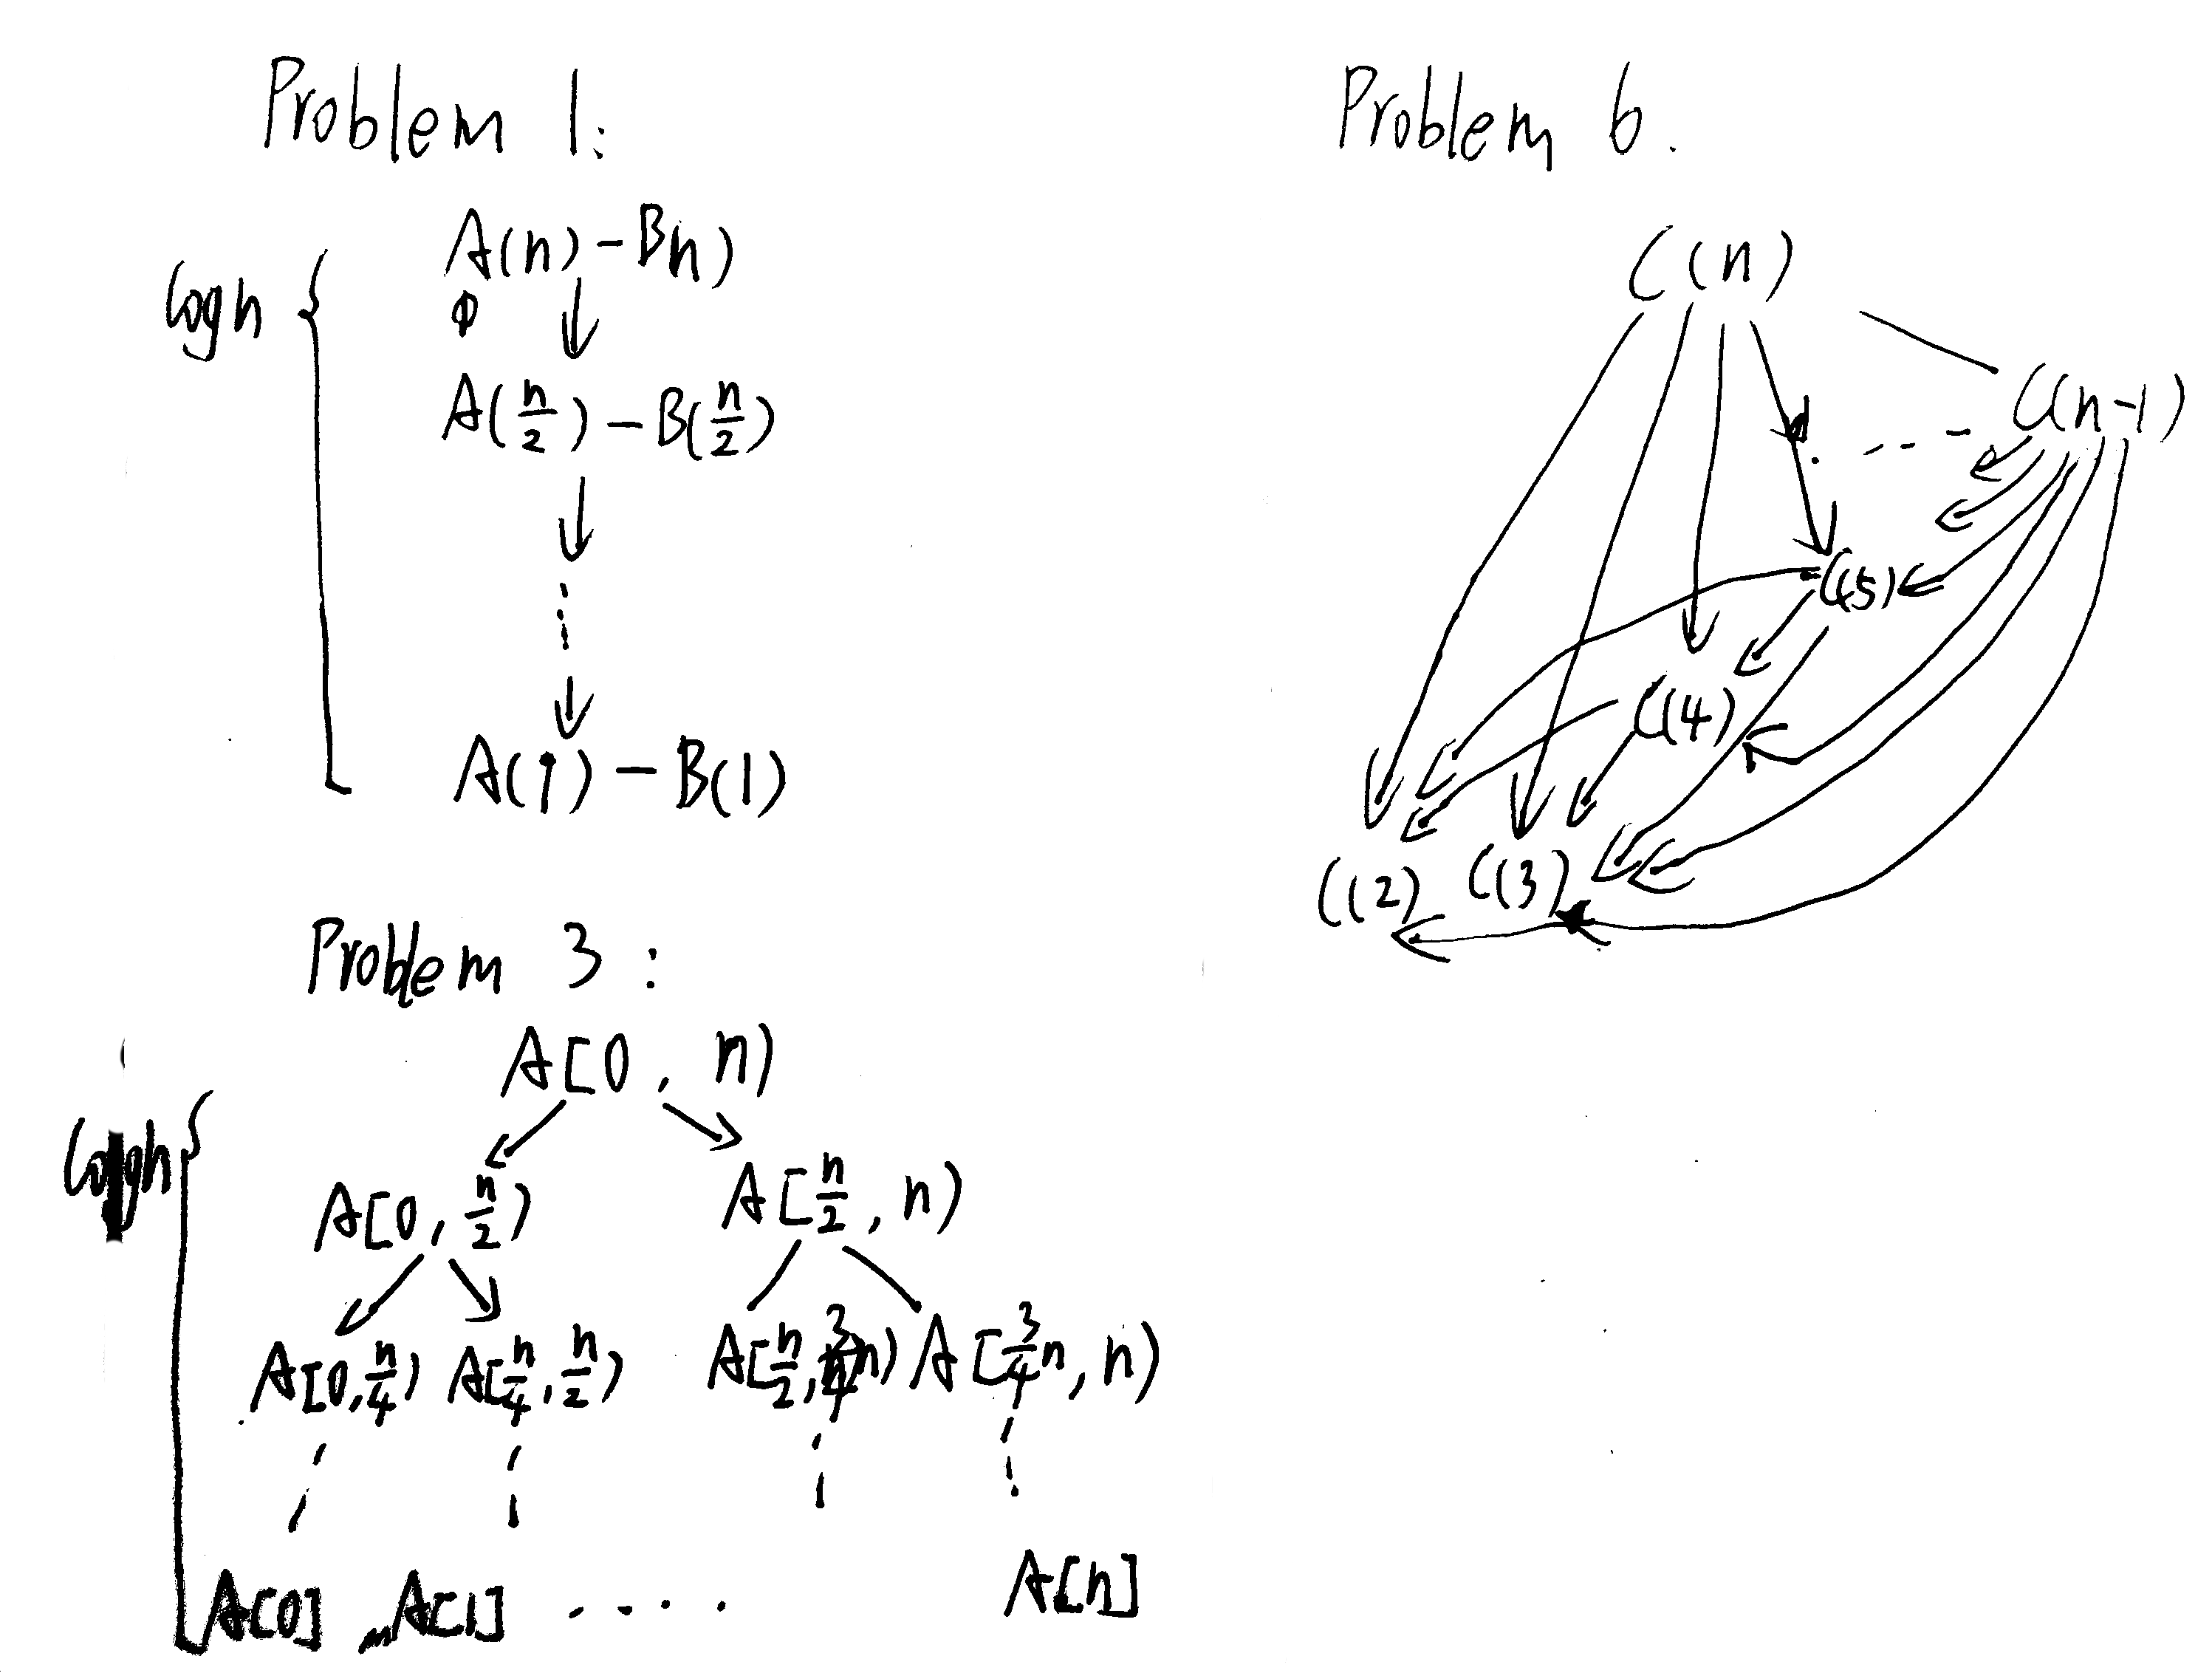 Problem 1:
A(n) - Bn)
logn
A(n/2) - B(n/2)
A(1) - B(1)
Problem 3:
A[0, n)
logn
A[0, n/2) A[n/2, n)
A[0, n/4) A[n/4, n/2) A[n/2, 3/4n) A[3/4n, n)
A[0] A[1] .... A[n]
Problem 6.
C(n)
C(n-1)
C(5)
C(4)
C(2) C(3)